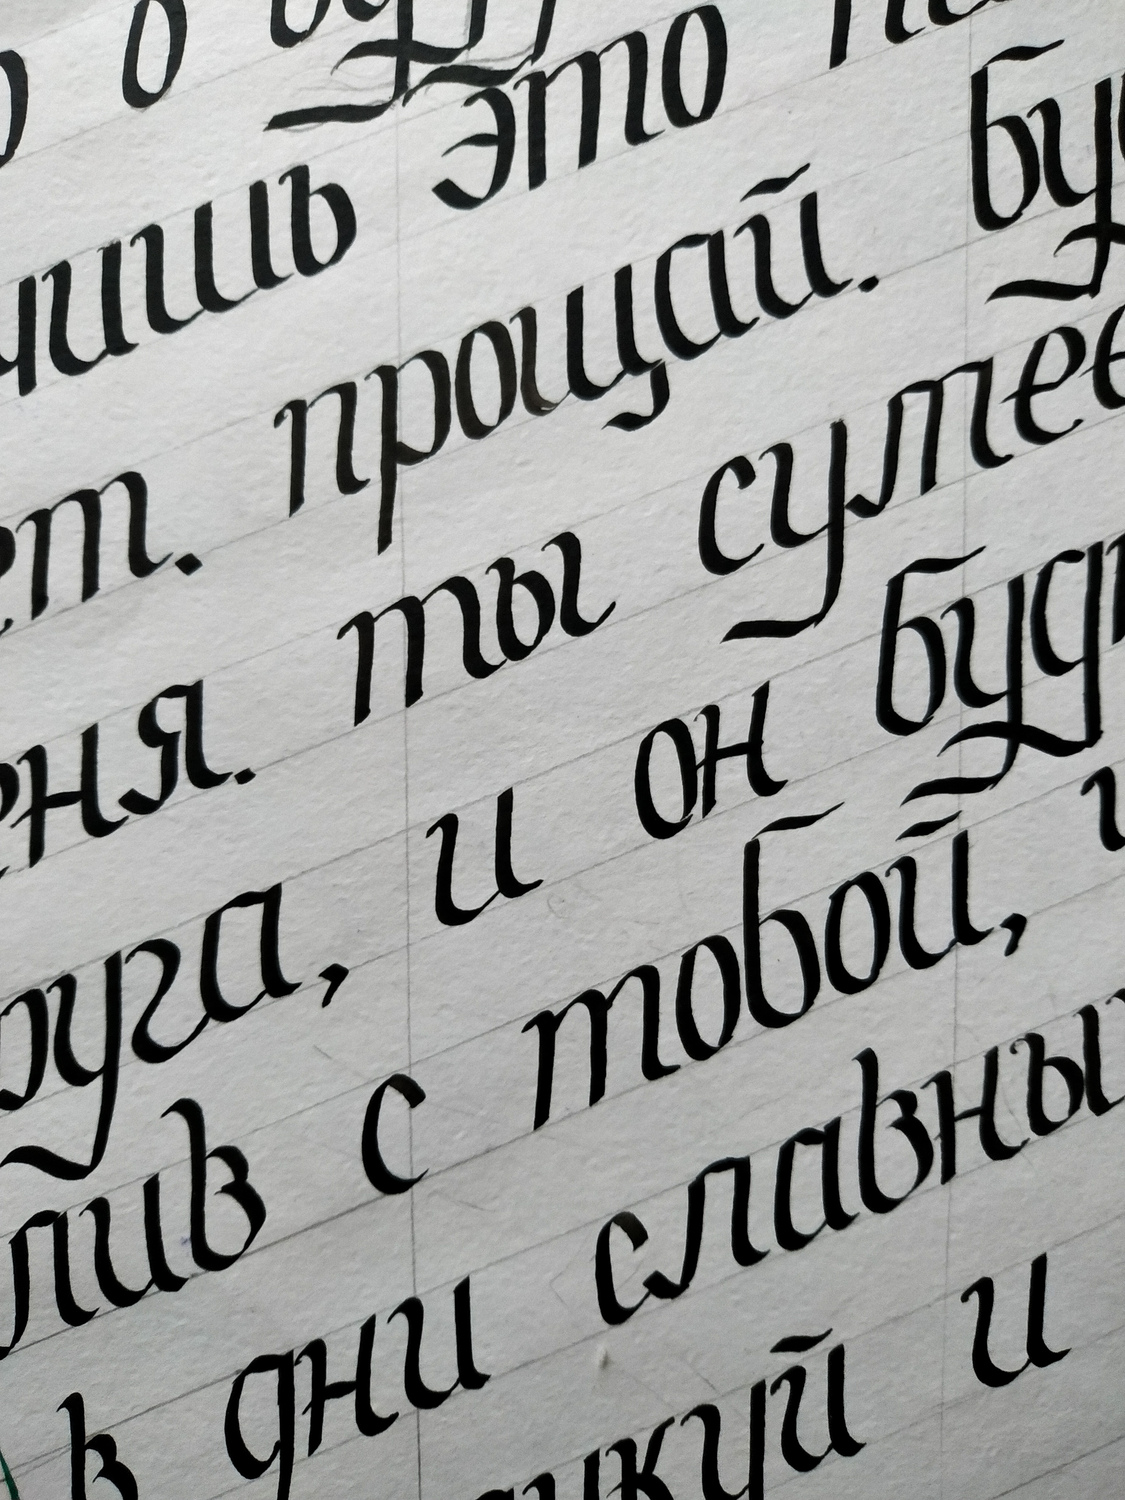 о буд
чишь это
ет. прощай. буд
еня. ты сумее
руга, и он будт
лив с тобой, и
в дни славны
аукуй и